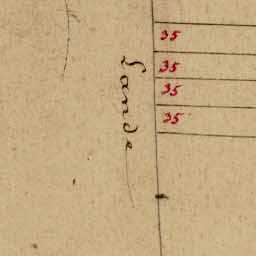 35
35
35
35
Lande